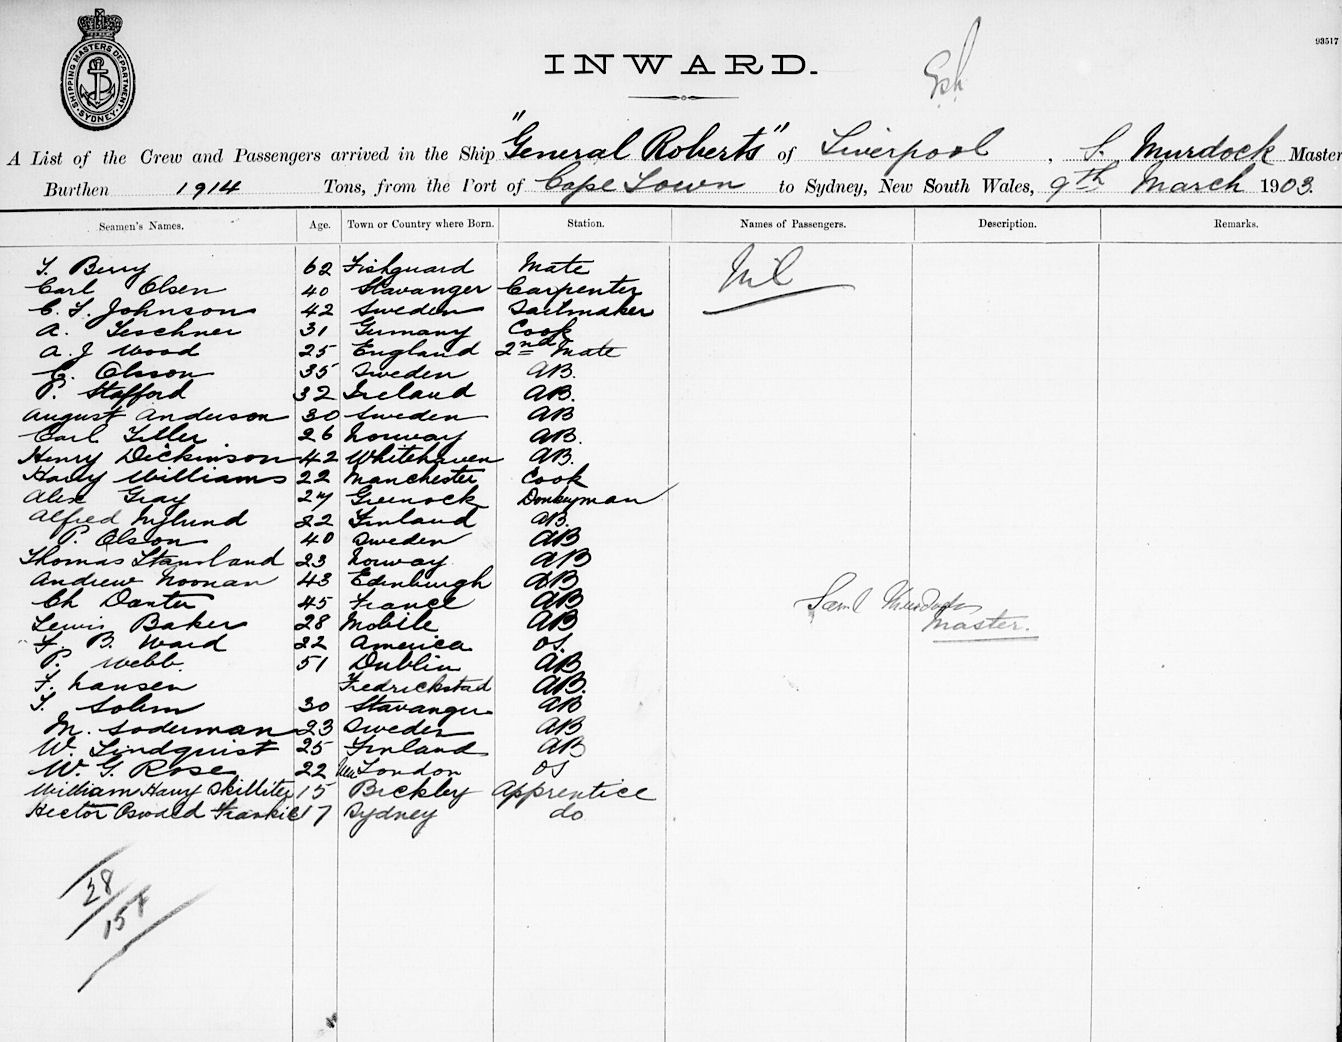 SHIPPING MASTERS DEPARTMENT
SYDNEY
93517
INWARD.
A List of the Crew and Passengers arrived in the Ship "General Roberts" of Liverpool, S. Murdock Master
Burthen 1914 Tons, from the Port of Cape Town to Sydney, New South Wales, 9th March 1903.
Seamen's Names. Age. Town or Country where Born. Station. Names of Passengers. Description. Remarks.
T. Berry 62 Fishguard Mate Nil
Carl Olsen 40 Stavanger Carpenter
C. F. Johnson 42 Sweden Sailmaker
A. Teschner 31 Germany Cook
A. J Wood 25 England 2nd Mate
C. Olsson 35 Sweden AB.
P. Stafford 32 Ireland AB.
August Anderson 30 Sweden AB
Carl Tiller 26 Norway AB.
Henry Dickinson 42 Whitehaven AB.
Harry Williams 22 Manchester Cook
Alex Gray 27 Greenock Donkeyman
Alfred Nylund 22 Finland AB.
P. Olson 40 Sweden AB
Thomas 23 Norway AB
Andrew Noonan 43 Edinburgh AB
Ch Danter 45 France AB
Saml Murdock
Lewis Baker 28 Mobile AB
Master.
F. B. Ward 22 America OS.
P. Webb. 51 Dublin AB
F. Nansen Fredrickstad AB.
T. Solem 30 Stavanger AB
M. Soderman 23 Sweden AB
W. Lindquist 25 Finland AB
W. G. Rose 22 New London OS
William Harry Skilliter 15 Bickley Apprentice
Hector Oswald Frankie 17 Sydney do
28
15F